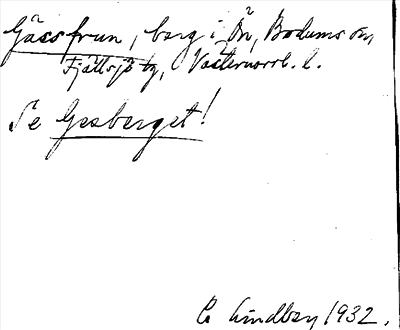 Gåssfrun, berg i Ön, Bodums sn,
Fjällsjö tg, Västernorrl. l.
Se Gesberget!
C. Lindberg 1932.